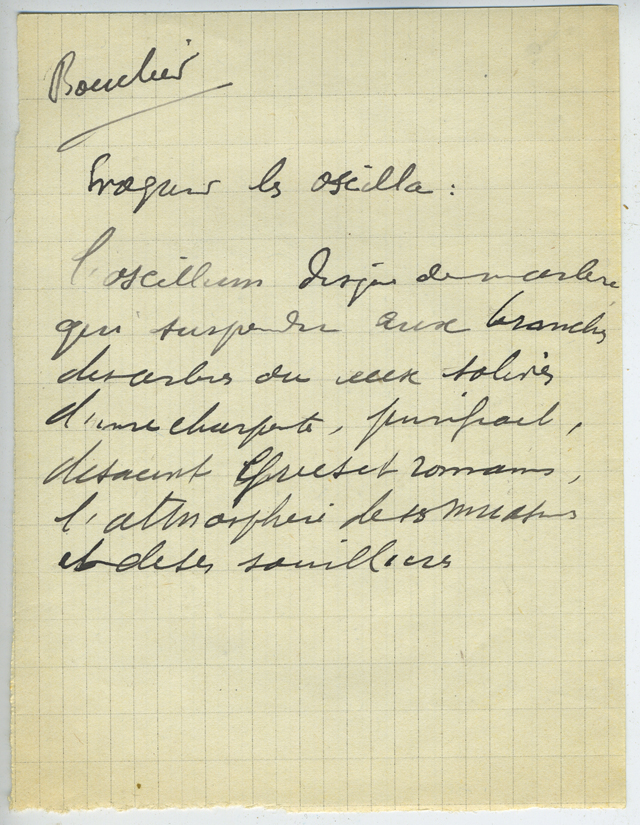 Bouclier
les oscilla :
l'oscillum disque de marbre
qui suspendu aux branches
des arbres ou aux solives
d'une charpente, purifiait,
disaient Grecs et romains,
l'atmosphère de ses miasmes
et de ses souillures